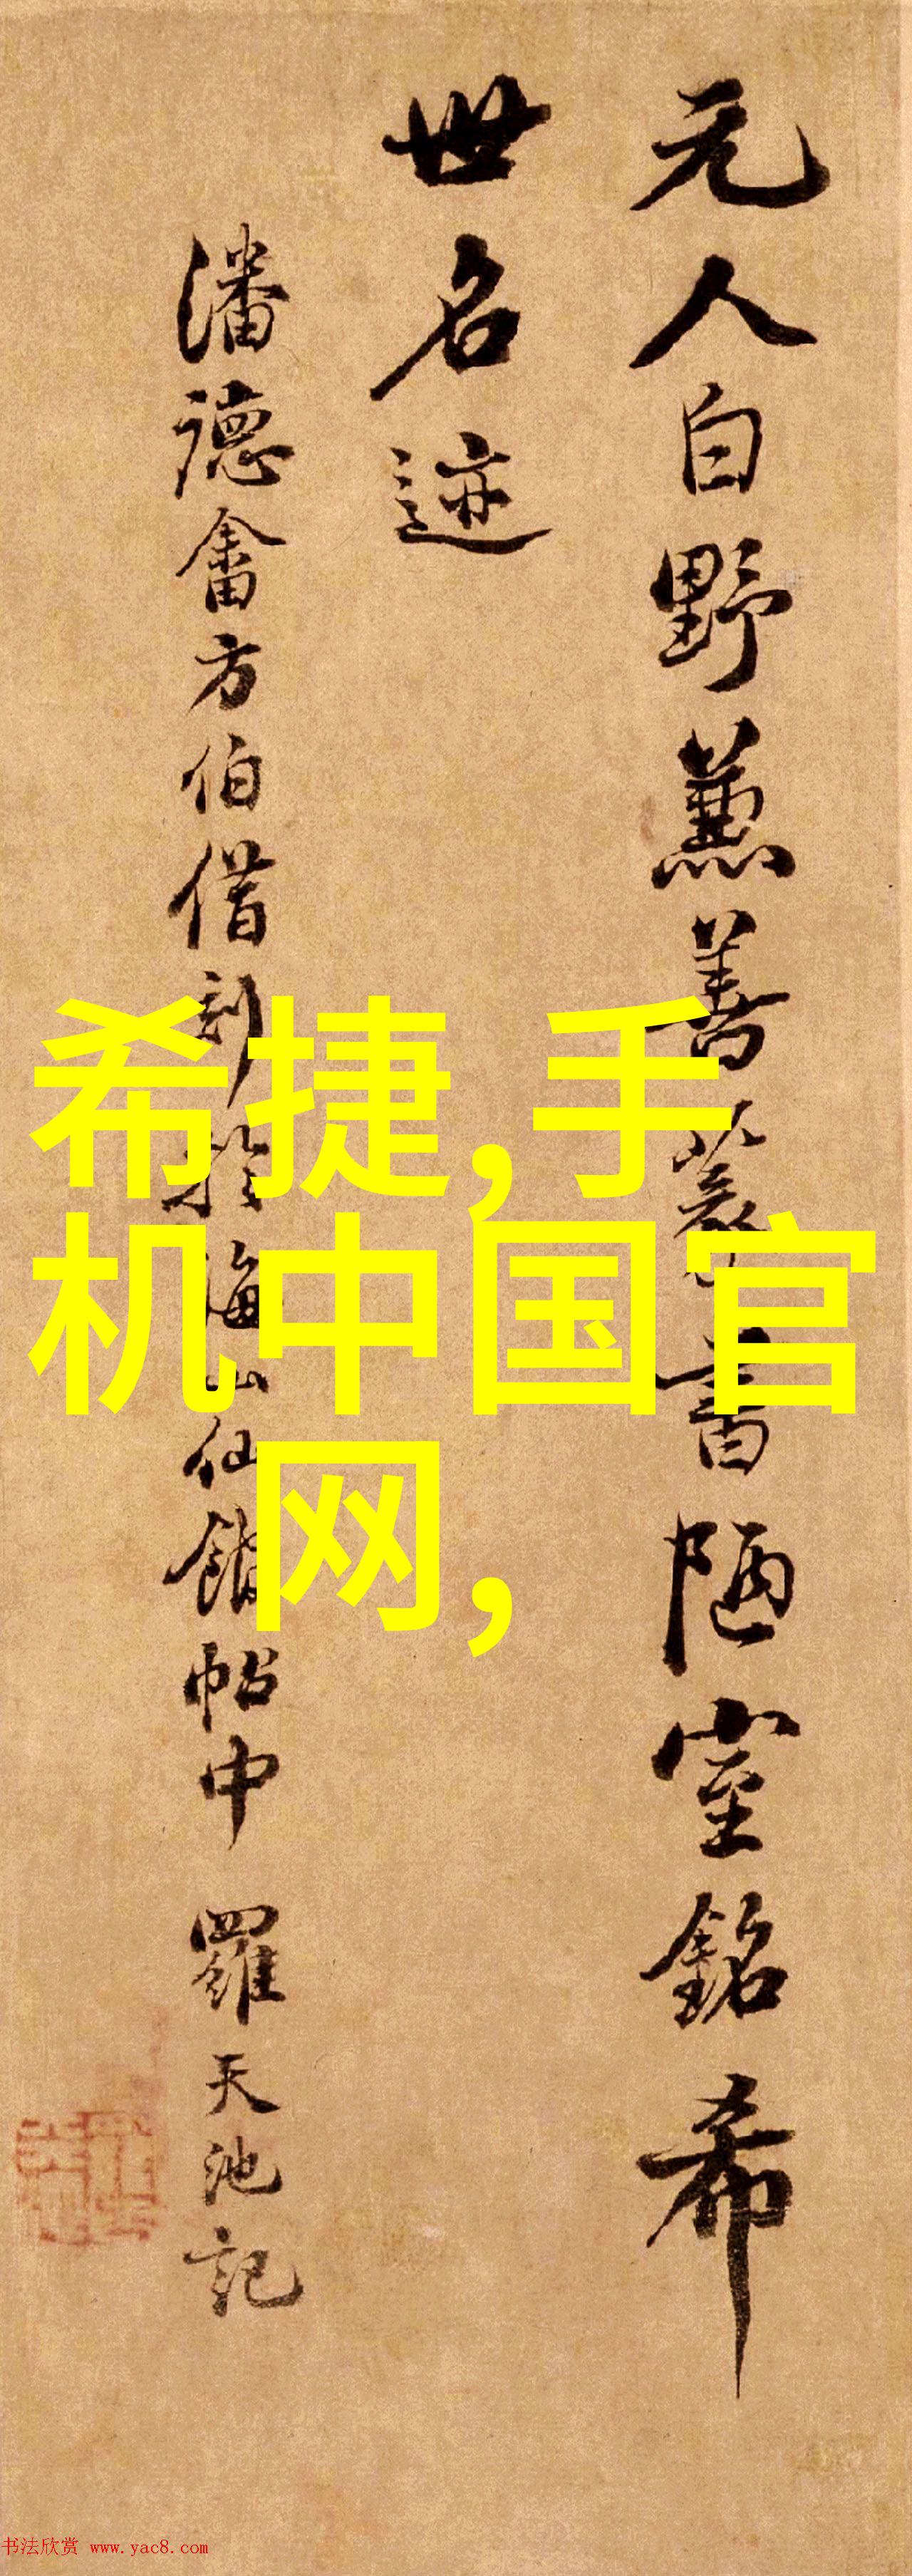 元人白野蕙善篆書陋室銘希
世名迹
潘德畬方伯借刻於海山仙館帖中 羅天池記
希捷,手
机中国官
网,
书法欣赏 www.yac8.com